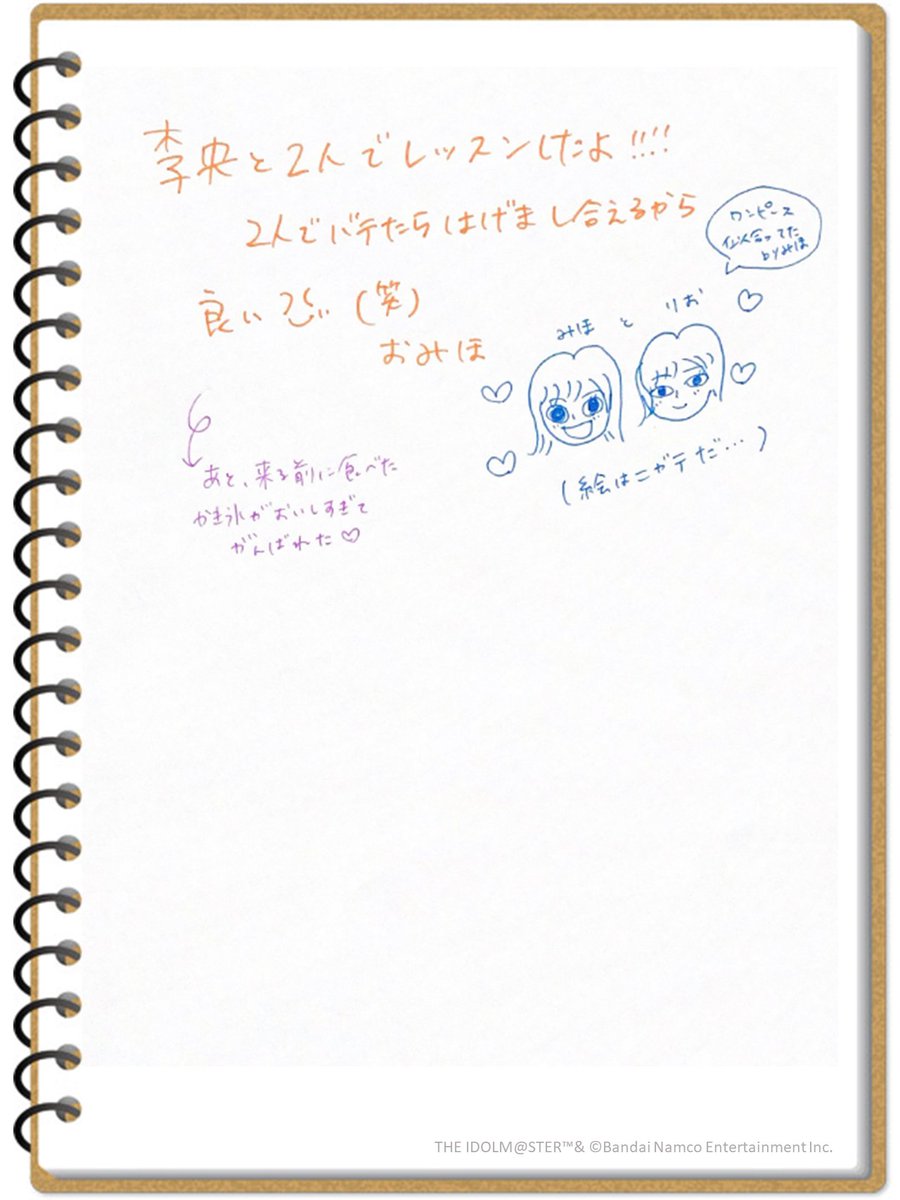 李央と2人でレッスンしたよ!!!!
2人でバテたらはげまし合えるから
良い(笑)
おみほ
ワンピース
似合ってた
byみほ
みほ と りお
(絵はニガテだ…)
あと、来る前に食べた
かき氷がおいしすぎて
がんばれた♡
THE IDOLM@STER™& ©Bandai Namco Entertainment Inc.